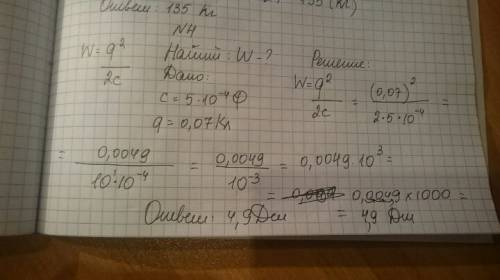 Ответ: 135 кг
N4
W = q²/2c
Найти: W - ?
Дано:
c = 5·10⁻⁴ Ф
q = 0,07 Кл
Решение:
W = q²/2c = (0,07)²/2·5·10⁻⁴ =
= 0,0049/10¹·10⁻⁴ = 0,0049/10⁻³ = 0,0049·10³ =
= 0,0049 × 1000 =
= 4,9 Дж
Ответ: 4,9 Дж